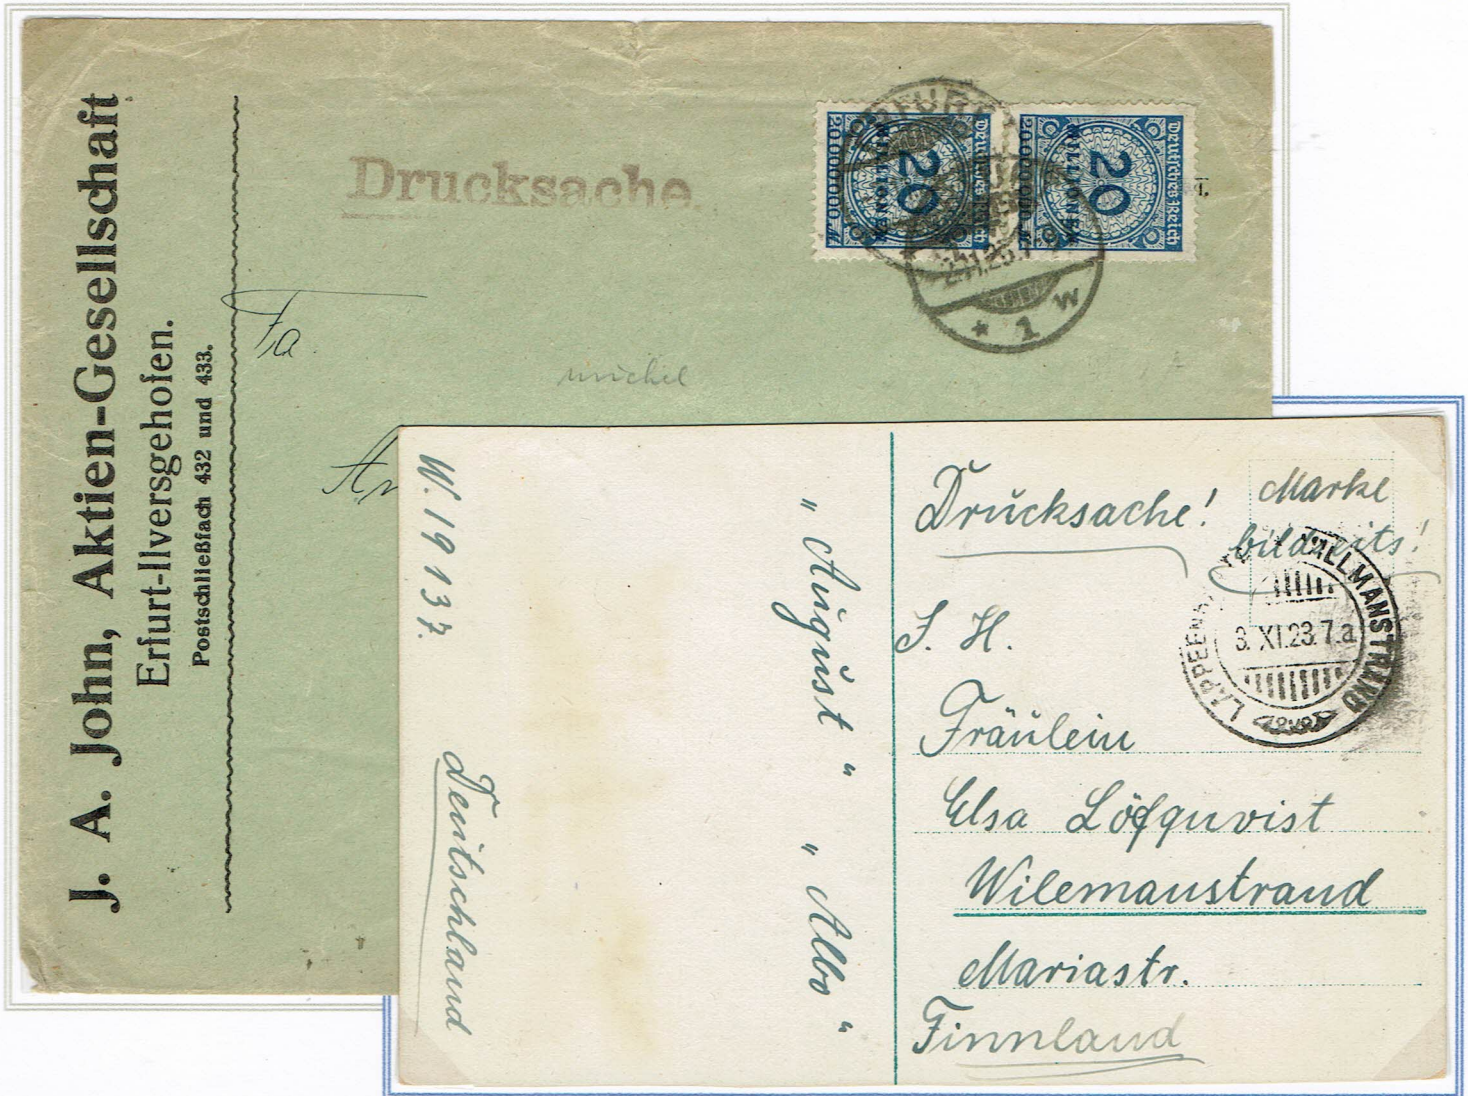 J. A. John, Aktien-Gesellschaft
Erfurt-Ilversgehofen.
Postschließfach 432 und 433.
Drucksache.
Deutsches Reich
20
MILLIONEN
20000000 M
Deutsches Reich
20
MILLIONEN
20000000 M
ERFURT
* 1 w
Fa.
michel
An
W. 19 137.
Deutschland
„ August “ „ Albo “
Drucksache!
Marke
bildseits!
LAPPEEN
WILLMANSTRAND
3. XI. 23. 7. a
S. H.
Fräulein
Elsa Löfquvist
Wilemanstrand
Mariastr.
Finnland